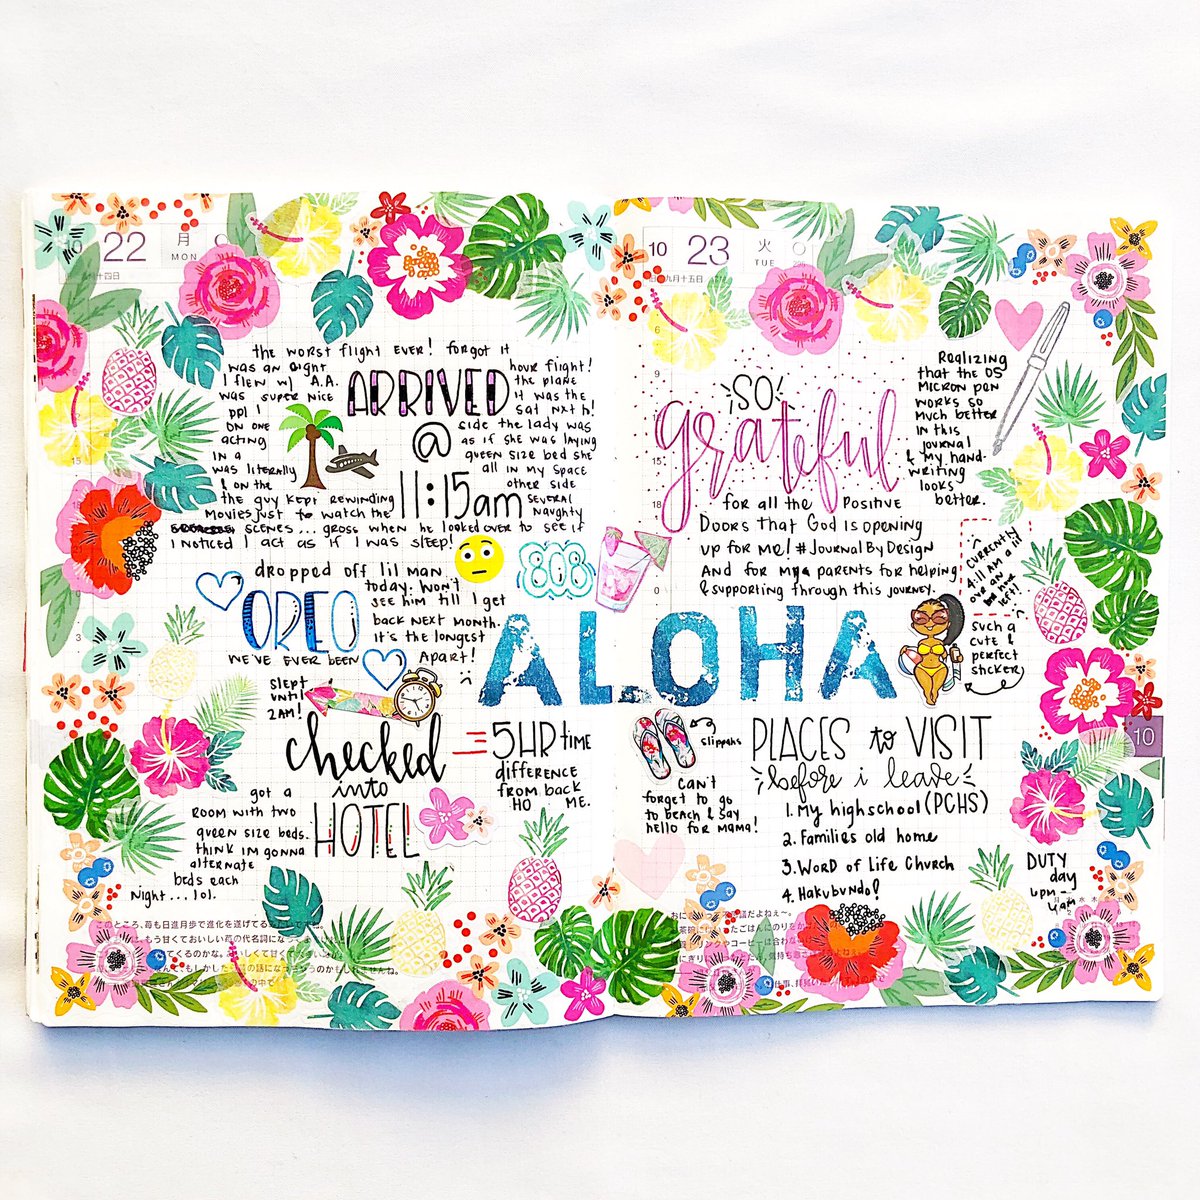 10 22 月
MON
十四日
the worst flight ever! forgot it
was an eight hour flight!
I flew w/ A.A. the plane
was super nice it was the
ppl I sat nxt h!
on one side the lady was
acting as if she was laying
in a queen size bed she
was literally all in my space
& on the other side
the guy kept rewinding several
movies just to watch the naughty
scenes... gross when he looked over to see if
I noticed I act as if I was sleep!
ARRIVED
@
11:15am
dropped off lil man
today. Won't
see him till I get
OREO
back next month.
it's the longest
we've ever been apart!
808
ALOHA
slept
until
2am!
checked
into
HOTEL
got a
room with two
queen size beds.
think im gonna
alternate
beds each
night... lol.
= 5HR time
difference
from back
HO ME.
このところ、苺も日進月歩で進化を遂げてる
もう甘くておいしい苺の代名詞になっ
てくるのかな。おいしくて甘く
もしかし
の話になっ
10 23 火
TUE
九月十五日
6
9
12
15
18
21
0
3
SO
grateful
for all the positive
Doors that God is opening
up for me! #JournalByDesign
And for my parents for helping
& supporting through this journey.
Realizing
that the 05
micron pen
works so
much better
in this
journal
& my hand-
writing
looks
better.
currently
4:11 AM & lit
over an
an hour
left!
such a
cute &
perfect
sticker
slippahs
can't
forget to go
to beach & say
hello for mama!
PLACES to VISIT
before i leave
1. My highschool (PCHS)
2. Families old home
3. Word of Life Church
4. Hakubundo!
DUTY
day
6pm -
4am
10